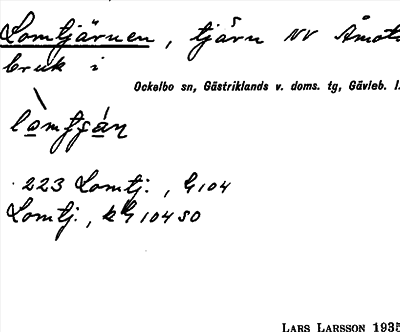 Lomtjärnen, tjärn NV Åmots
bruk i
Ockelbo sn, Gästriklands v. doms. tg, Gävleb. l.
223 Lomtj., G104
Lomtj., kG 104 SO
LARS LARSSON 1935